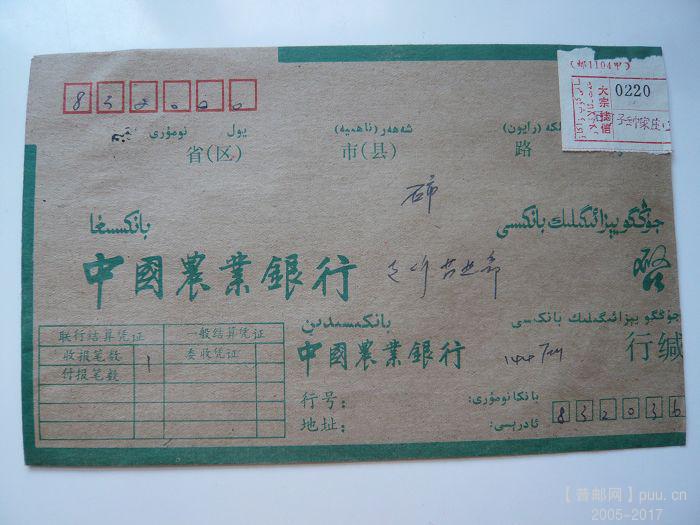 (邮1104甲)
大宗挂信 0220
832000
يول نومۇرى
شەھەر (ناھىيە)
(رايون)
省(区) 市(县) 路
بانكىسىغا
جۇڭگو يېزا ئىگىلىك بانكىسى
中國農業銀行
启
联行结算凭证 一般结算凭证
收报笔数 1 委收凭证
付报笔数
بانكىسىدىن
جۇڭگو يېزا ئىگىلىك بانكىسى
中國農業銀行 144 行缄
行号:
بانكا نومۇرى:
地址:
ئادرېسى:
832036
【普邮网】puu.cn
2005-2017